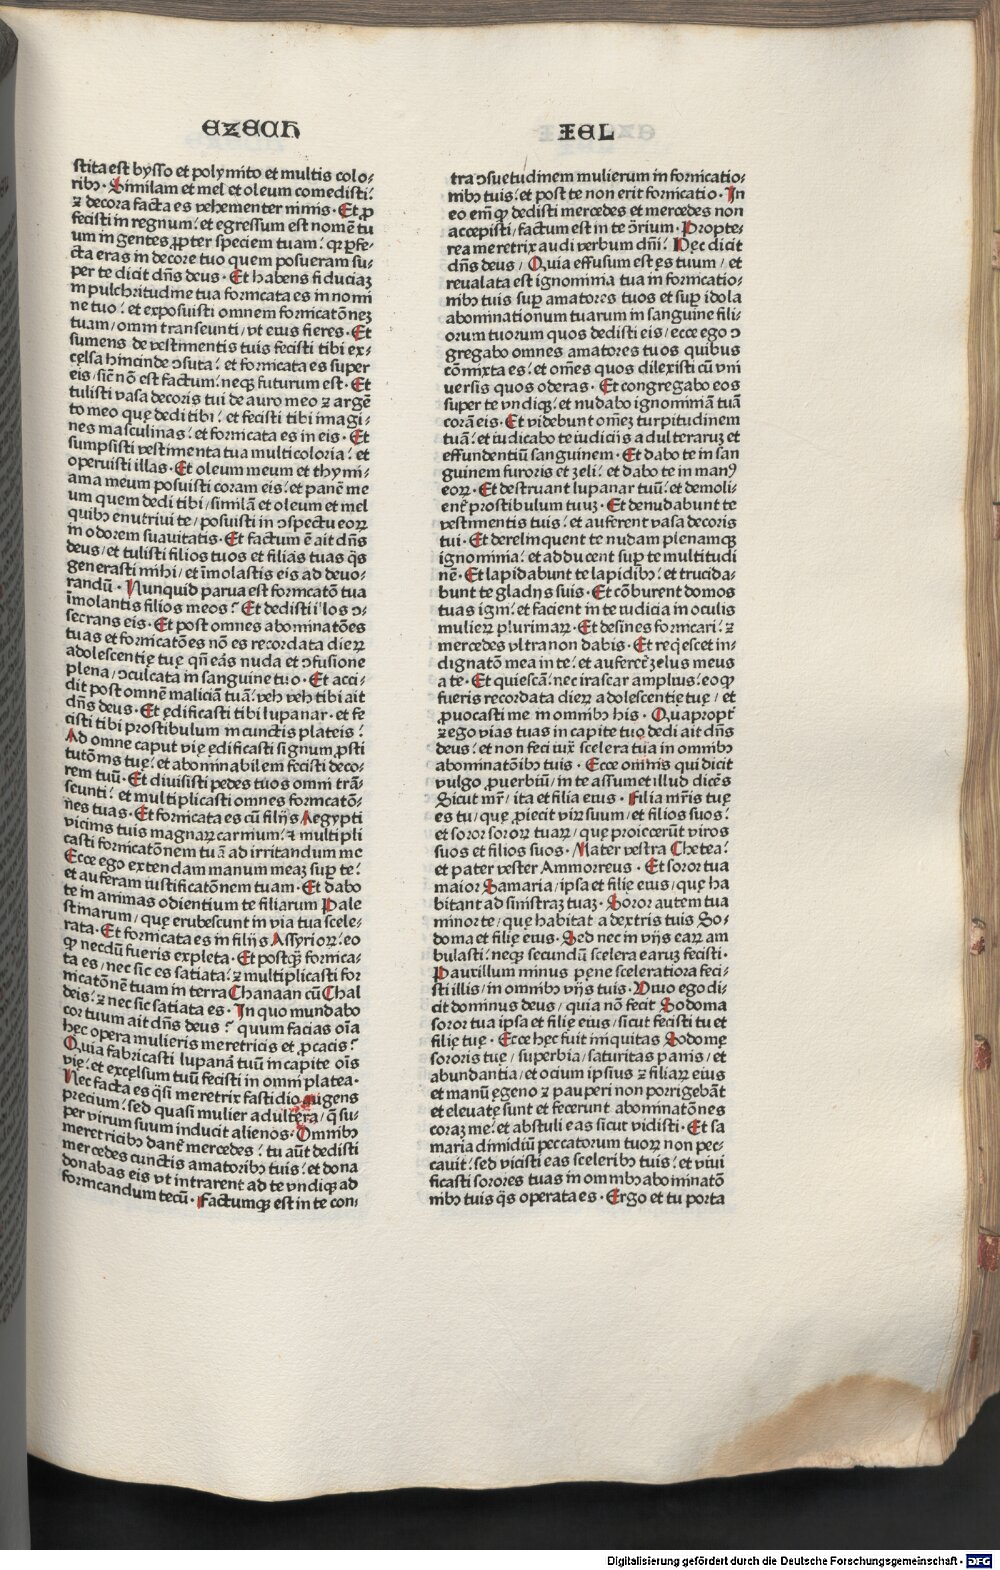 EZECH
stita est bysso et polymito et multis colo⸗
ribꝫ · Similam et mel et oleum comedisti:
⁊ decora facta es vehementer nimis · Et ꝓ
fecisti in regnum: et egressum est nomē tu
um in gentes ꝓpter speciem tuam: qꝛ ꝑfe⸗
cta eras in decore tuo quem posueram su⸗
per te dicit dn̄s deus · Et habens fiduciaꝫ
in pulchritudine tua fornicata es in nomi
ne tuo: et exposuisti omnem fornicatōneꝫ
tuam/ omni transeunti/ vt eius fieres · Et
sumens de vestimentis tuis fecisti tibi ex⸗
cęlsa hincinde ↄsuta: et fornicata es super
eis/ sic̄ nō est factum: neqꝫ futurum est · Et
tulisti vasa decoris tui de auro meo ⁊ argē
to meo quę dedi tibi: et fecisti tibi imagi⸗
nes masculinas: et fornicata es in eis · Et
sumpsisti vestimenta tua multicoloria: et
operuisti illas · Et oleum meum et thymi⸗
ama meum posuisti coram eis: et panē me
um quem dedi tibi/ similā et oleum et mel
quibꝫ enutriui te/ posuisti in ↄspectu eoꝝ
in odorem suauitatis · Et factum ē ait dn̄s
deus/ et tulisti filios tuos et filias tuas q̄s
generasti mihi/ et īmolastis eis ad deuo⸗
randū · Nunquid parua est fornicatō tua
īmolantis filios meos? Et dedisti illos ↄ⸗
secrans eis · Et post omnes abominatōes
tuas et fornicatōes nō es recordata dieꝝ
adolescentię tuę qn̄ eās nuda et ↄfusione
plena/ ↄculcata in sanguine tuo · Et acci⸗
dit post omnē maliciā tuā: veh veh tibi ait
dn̄s deus · Et ędificasti tibi lupanar · et fe
cisti tibi prostibulum in cunctis plateis:
Ad omne caput vię ędificasti signum ꝓsti
tutōnis tuę: et abominabilem fecisti deco⸗
rem tuū · Et diuisisti pedes tuos omni trā⸗
seunti: et multiplicasti omnes fornicatō⸗
nes tuas · Et fornicata es cū filijs Aegypti
vicinis tuis magnaꝝ carnium: ⁊ multipli
casti fornicatōnem tuā ad irritandum me
Ecce ego extendam manum meaꝫ sup te:
et auferam iustificatōnem tuam · Et dabo
te in animas odientium te filiarum Pale
stinarum/ quę erubescunt in via tua scele⸗
rata · Et fornicata es in filijs Assyrioꝝ: eo
qꝙ necdū fueris expleta · Et postqꝫ fornica⸗
ta es/ nec sic es satiata: ⁊ multiplicasti for
nicatōnē tuam in terra Chanaan cū Chal
deis: ⁊ nec sic satiata es · In quo mundabo
cor tuum ait dn̄s deus? quum facias oīa
hęc opera mulieris meretricis et ꝓcacis?
Quia fabricasti lupanā tuū in capite oīs
vię: et excęlsum tuū fecisti in omni platea·
Nec facta es q̄si meretrix fastidio augens
precium: sed quasi mulier adultera/ q̄ su⸗
per virum suum inducit alienos · Omnibꝫ
meretricibꝫ danť mercedes: tu aūt dedisti
mercedes cunctis amatoribꝫ tuis: et dona
donabas eis vt intrarent ad te vndiqꝫ ad
fornicandum tecū · Factumqꝫ est in te con⸗
IEL
tra ↄsuetudinem mulierum in fornicatio⸗
nibꝫ tuis: et post te non erit fornicatio · In
eo em̄ qꝙ dedisti mercedes et mercedes non
accepisti/ factum est in te ↄ̄rium · Propte⸗
rea meretrix audi verbum dn̄i: Hec dicit
dn̄s deus/ Quia effusum est ęs tuum/ et
reualata est ignominia tua in fornicatio⸗
nibꝫ tuis suꝑ amatores tuos et suꝑ idola
abominationum tuarum in sanguine fili⸗
orum tuorum quos dedisti eis/ ecce ego ↄ
gregabo omnes amatores tuos quibus
cōmixta es: et om̄es quos dilexisti cū vni
uersis quos oderas · Et congregabo eos
super te vndiqꝫ: et nudabo ignominiā tuā
corā eis · Et videbunt om̄eꝫ turpitudinem
tuā: et iudicabo te iudicijs adulteraruꝫ et
effundentiū sanguinem · Et dabo te in san
guinem furoris et ʒeli: et dabo te in manꝰ
eoꝝ · Et destruant lupanar tuū: et demoli⸗
enť prostibulum tuuꝫ · Et denudabunt te
vestimentis tuis: et auferent vasa decoris
tui · Et derelinquent te nudam plenamqꝫ
ignominia: et adducent suꝑ te multitudi
nē · Et lapidabunt te lapidibꝫ: et trucida⸗
bunt te gladijs suis · Et cōburent domos
tuas igni: et facient in te iudicia in oculis
mulieꝝ plurimaꝝ · Et desines fornicari: ⁊
mercedes vltra non dabis · Et req̇escet in⸗
dignatō mea in te: et auferet̄ ʒelus meus
a te · Et quiescā: nec irascar amplius: eo qꝙ
fueris recordata dieꝝ adolescentię tuę/ et
ꝓuocasti me in omnibꝫ his · Quapropť
⁊ ego vias tuas in capite tuo dedi ait dn̄s
deus: et non feci iux̄ scelera tua in omnibꝫ
abominatōibꝫ tuis · Ecce omnis qui dicit
vulgo ꝓuerbiū/ in te assumet illud dicēs
Sicut mr̄/ ita et filia eius · Filia mr̄is tuę
es tu/ quę ꝓiecit viꝝ suum/ et filios suos:
et soror soroꝝ tuaꝝ/ quę proiecerūt viros
suos et filios suos · Mater vestra Chetea:
et pater vester Ammorreus · Et soror tua
maior Samaria/ ipsa et filię eius/ quę ha
bitant ad sinistraꝫ tuaꝫ · Soror autem tua
minor te/ quę habitat a dextris tuis So⸗
doma et filię eius · Sed nec in vijs eaꝝ am
bulasti: neqꝫ secundū scelera earuꝫ fecisti·
Pauxillum minus pene sceleratiora feci⸗
sti illis/ in omnibꝫ vijs tuis · Viuo ego di⸗
cit dominus deus/ quia nō fecit Sodoma
soror tua ipsa et filię eius/ sicut fecisti tu et
filię tuę · Ecce hęc fuit iniquitas Sodomę
sororis tuę/ superbia/ saturitas panis/ et
abundantia/ et ocium ipsius ⁊ filiaꝝ eius
et manū ęgeno ⁊ pauperi non porrigebāt
et eleuatę sunt et fecerunt abominatōnes
coraꝫ me: et abstuli eas sicut vidisti · Et sa
maria dimidiū peccatorum tuoꝝ non pec⸗
cauit: sed vicisti eas sceleribꝫ tuis: et viui
ficasti sorores tuas in omnibꝫ abominatō
nibꝫ tuis q̄s operata es · Ergo et tu porta
Digitalisierung gefördert durch die Deutsche Forschungsgemeinschaft - DFG